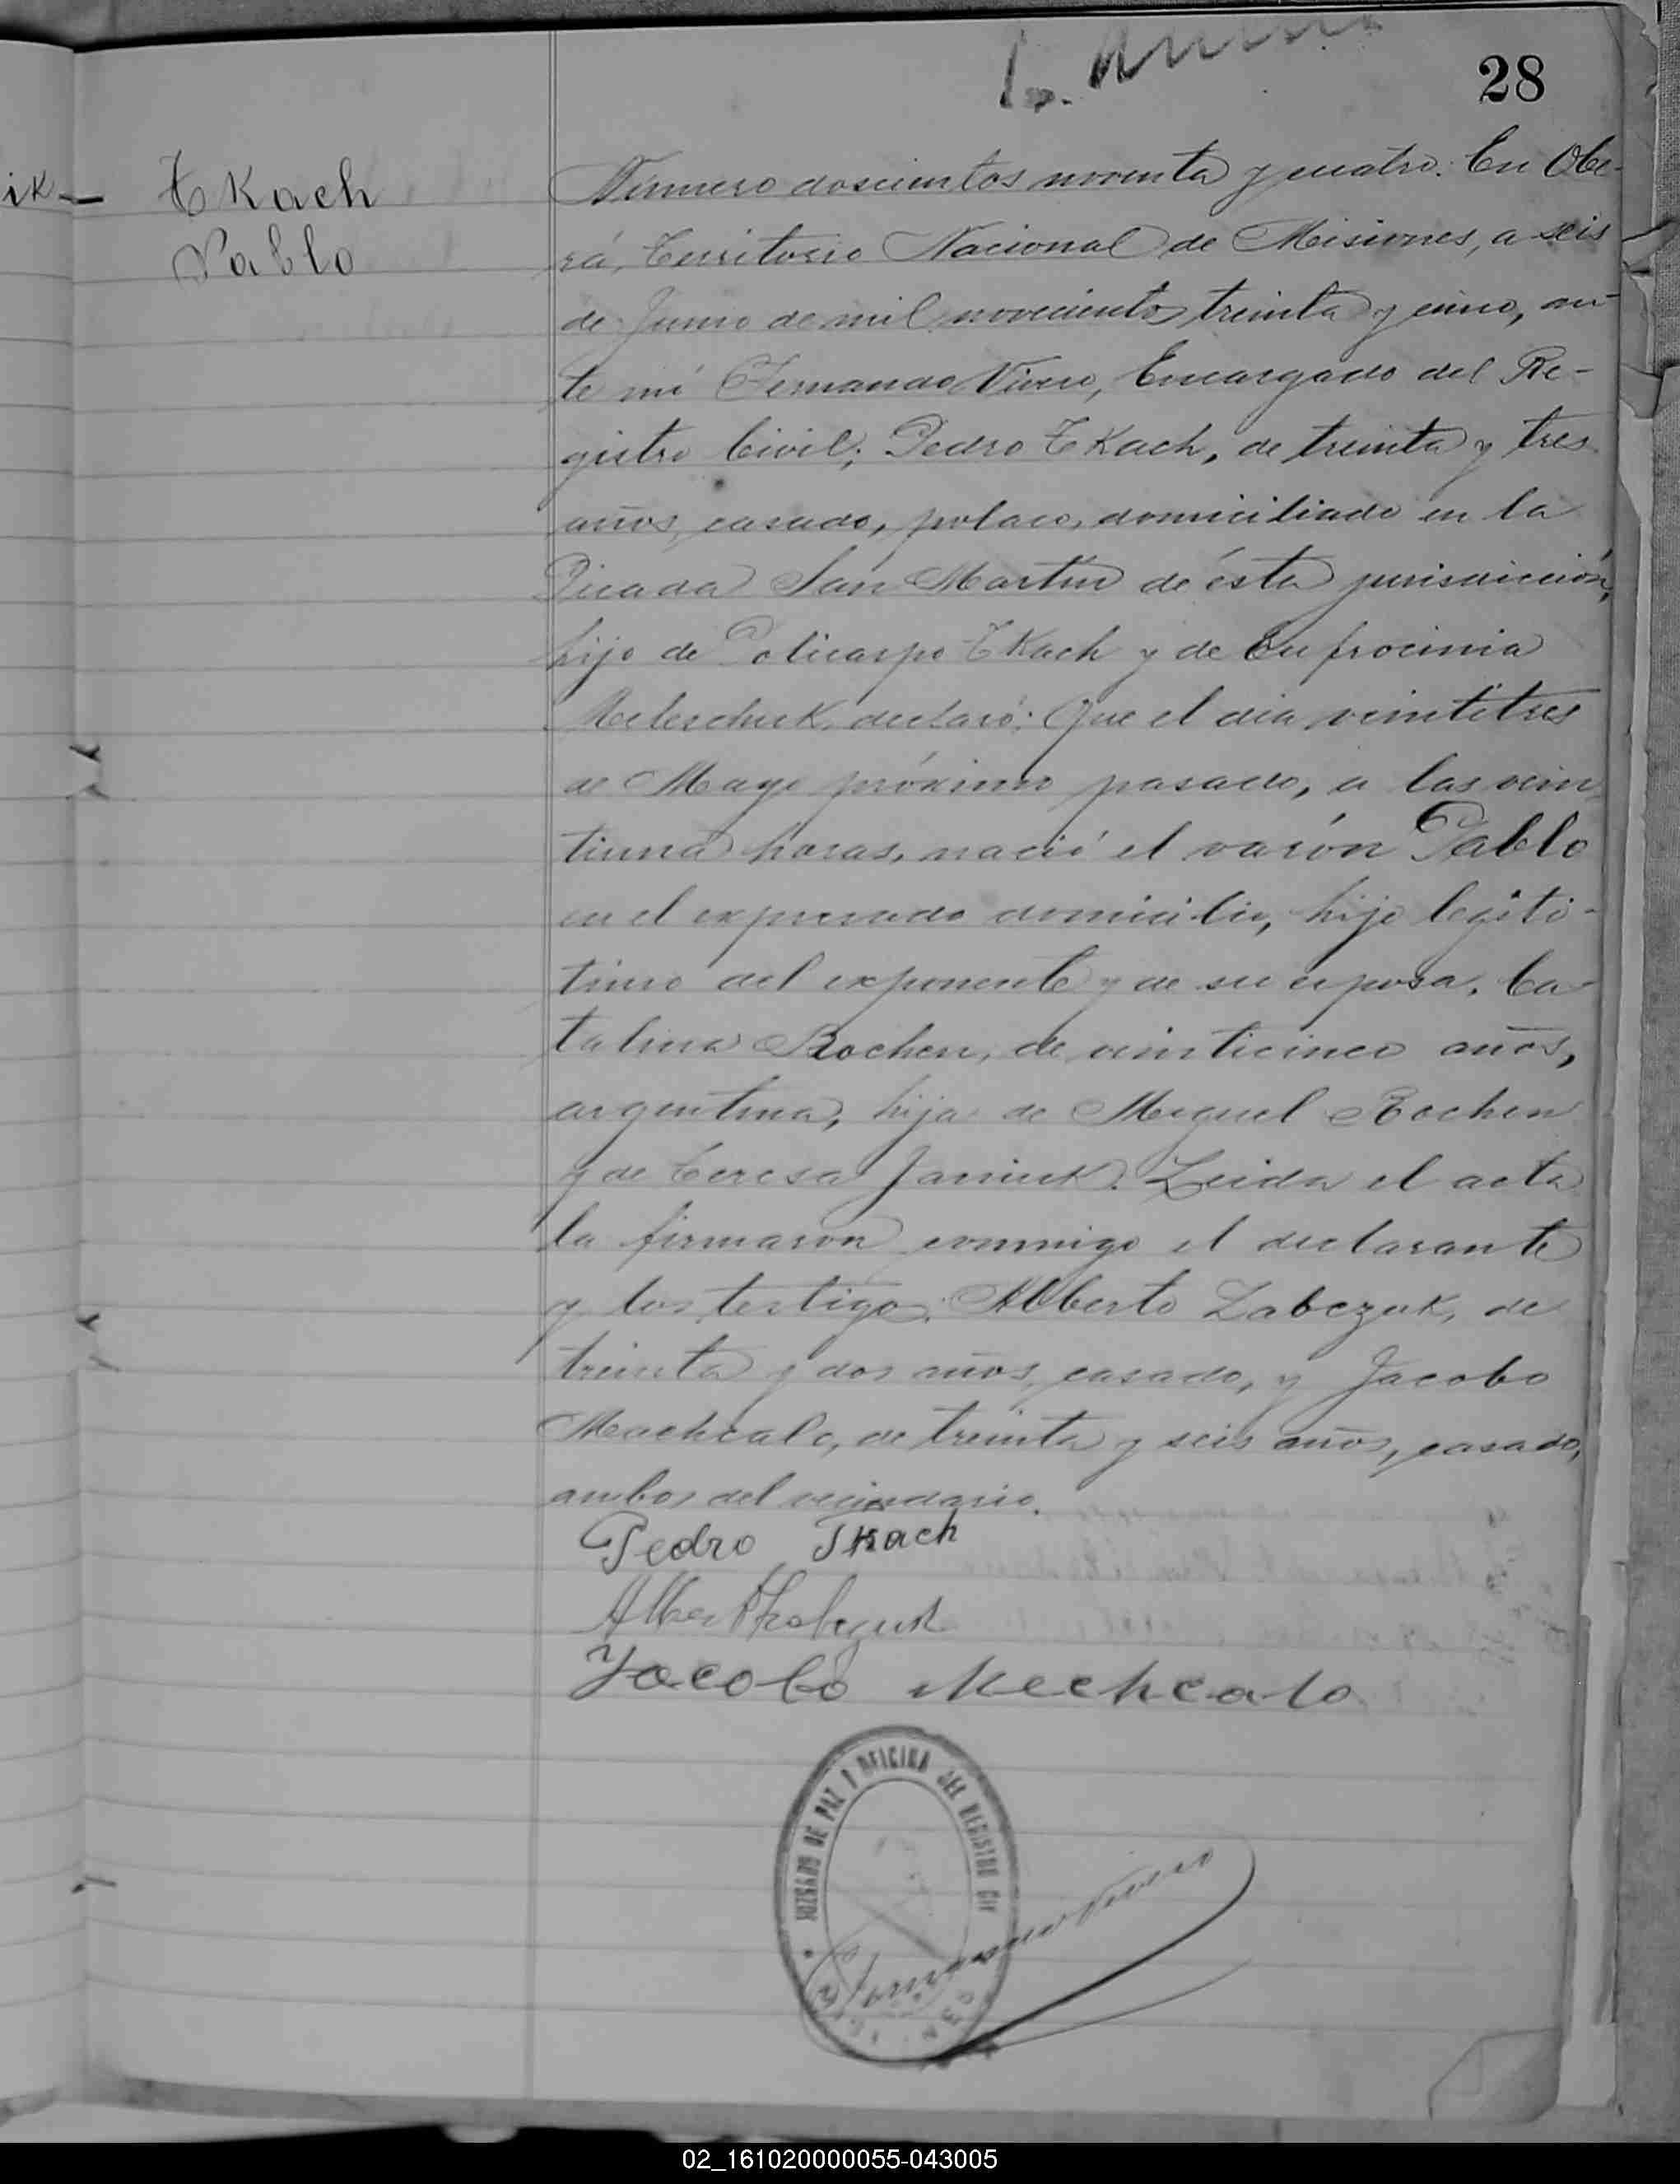 28
ik—
Tkach
Pablo
Número doscientos noventa y cuatro. En Obe-
rá, Territorio Nacional de Misiones, a seis
de Junio de mil novecientos treinta y cinco, an-
te mí Fernando Vivero, Encargado del Re-
gistro Civil; Pedro Tkach, de treinta y tres
años, casado, polaco, domiciliado en la
Picada San Martín de ésta jurisdicción,
hijo de Policarpo Tkach y de Eufrocinia
Meleschuk, declaró: Que el día veintitres
de Mayo próximo pasado, a las vein-
tiuna horas, nació el varón Pablo
en el expresado domicilio, hijo legíti-
timo del exponente y de su esposa, Ca-
talina Rochen, de veinticinco años,
argentina, hija de Miguel Rochen
y de Teresa Janiuk. Leida el acta
la firmaron conmigo el declarante
y los testigos: Alberto Zabczuk, de
treinta y dos años, casado, y Jacobo
Mechcalo, de treinta y seis años, casado,
ambos del vecindario.
Pedro Tkach
Jacobo Mechcalo
JUZGADO DE PAZ Y OFICINA DEL REGISTRO CIV
Fernando Vivero
02_161020000055-043005